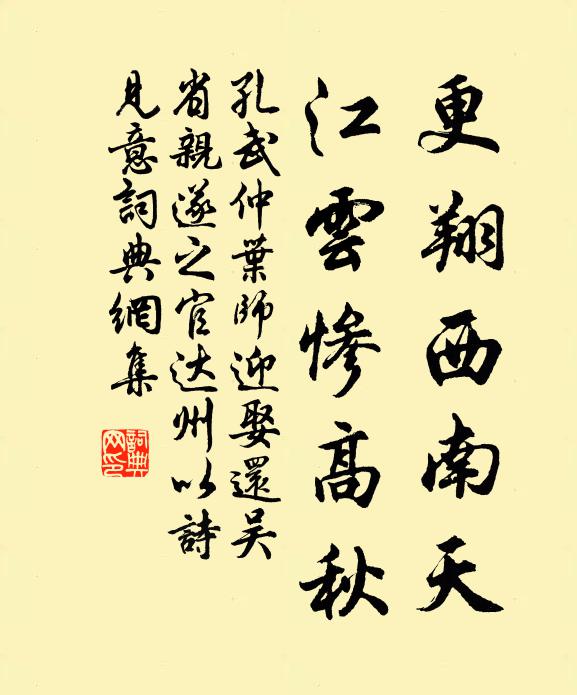 更翔西南天
江雲慘高秋
孔武仲葉師迎娶還吴
省親遂之官达州以詩
見意詞典網集
詞典網印